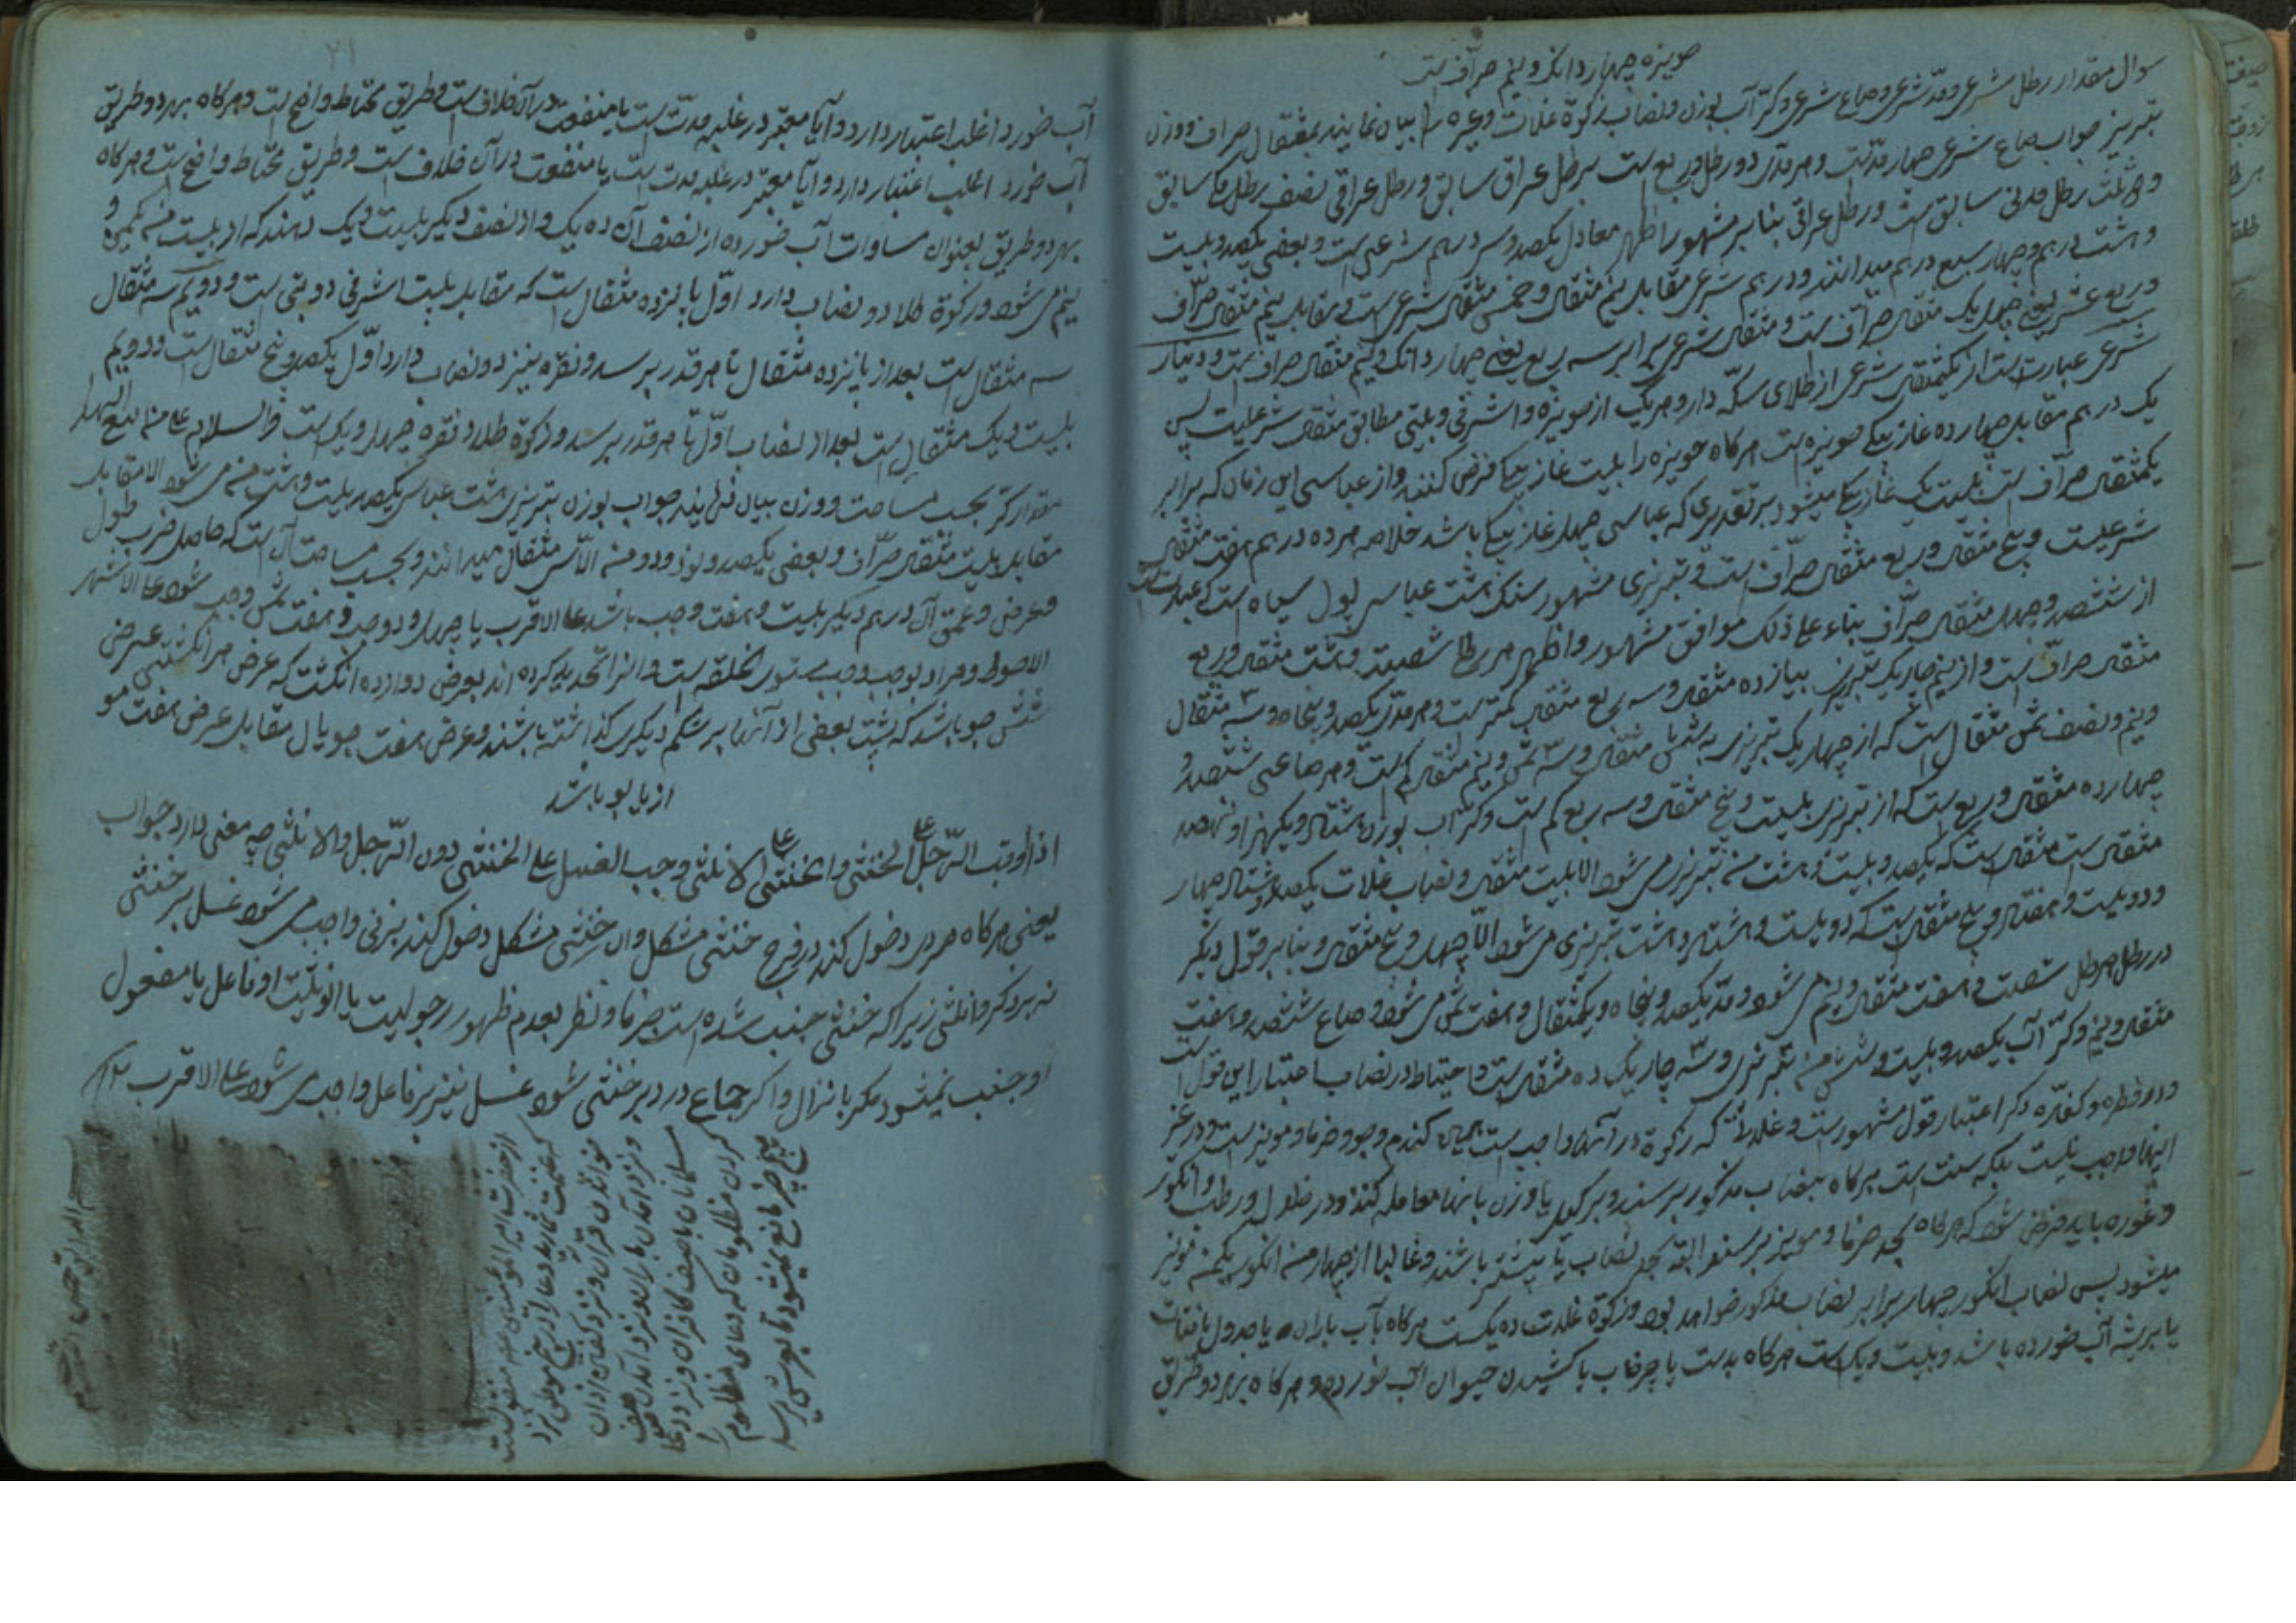 حویزه چهار دانک و نیم صرّاف است
سوال مقدار رطل شرعی و مدّ شرعی و صاع شرعی و کرّ آب بوزن و نصاب زکوة غلات و غیره را بیان نمایند بمثقال صراف و وزن
تبریز جواب صاع شرعی چهار مدّ است و هر مدّی دو رطل و ربع است برطل عراق سابق و رطل عراقی نصف رطل مکّه سابق
و دو ثلث رطل مدنی سابق است و رطل عراقی بنا بر مشهور و اظهر معادل یکصد و سی درهم شرعی است و بعضی یکصد و بیست
و هشت درهم و چهار سبع درهم میدانند و درهم شرعی مقابل نیم مثقال و خمس مثقال شرعی است و مقابل نیم مثقال صرّاف
و ربع عشر یعنی چهل یک مثقال صرّاف است و مثقال شرعی برابر سه ربع یعنی چهار دانک و نیم مثقال صراف است و دینار
شرعی عبارت است از یکمثقال شرعی از طلای سکّه دار و هر یک از حویزه و اشرفی دوبتی مطابق مثقال شرعیست پس
یک درهم مقابل چهارده غاز بیکی حویزه است هر کاه حویزه را بیست غاز بیکی فرض کنند و از عباسی این زمان که برابر
یکمثقال صرّاف است بیست یک غاز بیکی میشود بر تقدیری که عباسی چهل غاز بیکی باشد خلاصه هر ده درهم هفت مثقال
شرعیست و پنج مثقال و ربع مثقال صرّاف است و تبریزی مشهور سنک هشت عباسی پول سیاه است که عبارت است
از ششصد و چهل مثقال صرّاف بناء علی ذلک موافق مشهور و اظهر هر رطل شصت و هشت مثقال و ربع
مثقال صرّاف است و از نیم چاریک تبریز بیازده مثقال و سه ربع مثقال کمتر است و هر مدّی یکصد و پنجاه و سه مثقال
و نیم و نصف ثمن مثقال است که از چهار یک تبریزی به شش مثقال و سه ثمن و نیم مثقال کم است و هر صاعی ششصد و
چهارده مثقال و ربع است که از تبریزی بیست و پنج مثقال و سه ربع کم است و کر آب بوزن هشتاد و یکهزار و نهصد
مثقال است مثقال است که یکصد و بیست و هشت من تبریزی می شود الا بیست مثقال و نصاب غلات یکصد و هشتاد و چهار
و دویست و هفتاد و پنج مثقال است که دویست و هشتاد و هشت تبریزی می شود الّا چهل و پنج مثقال و بنا بر قول دیکر
در رطل هر رطل شصت و هفت مثقال و نیم می شود و مدّ یکصد و پنجاه و یکمثقال و هفت ثمن می شود و صاع ششصد و هفت
مثقال و نیم و کرّ آب یکصد و بیست و شش من تبریزی و سه چاریک ده مثقال است و احتیاط در نصاب اعتبار این قول است
و در فطره و کفاره و کر اعتبار قول مشهور است و غلاتی که زکوة در آنها واجب است همان کندم و جو و خرما و مویز است و در غیر
اینها واجب نیست بلکه سنت است هر کاه بنصاب مذکور برسند و بر کیل یا وزن بانها معامله کنند و در خلال و رطب و انکور
و غوره باید فرض شود که هر کاه بحد خرما و مویز برسند البته بحد نصاب یا بیشتر باشند و غالبا از چهار من انکور یکمن مویز
میشود پس نصاب انکور چهار برابر نصاب مذکور خواهد بود و زکوة غلات ده یکست هر کاه بآب باران یا جدول یا قنات
یا بریشه آب خورده باشد و بیست و یک است هر کاه بدست یا چرخاب یا کشیدن حیوان آب خورده و هر کاه بهر دو طریق
آب خورد اغلب اعتبار دارد و آیا معتبر در غلبه مدّت است یا منفعت در آن خلاف است و طریق محتاط واضح است و هر کاه بهر دو طریق
آب خورد اغلب اعتبار دارد و آیا معتبر در غلبه مدت است یا منفعت در آن خلاف است و طریق محتاط واضح است و هر کاه
بهر دو طریق بعنوان مساوات آب خورده از نصف آن ده یک و از نصف دیکر بیست و یک دهند که از بیست من یکمن و
نیم می شود و زکوة طلا دو نصاب دارد اوّل پانزده مثقال است که مقابل بیست اشرفی دوبتی است و دویم سه مثقال
سه مثقال است بعد از پانزده مثقال تا هر قدر برسد و نقره نیز دو نصاب دارد اوّل یکصد و پنج مثقال است و دویم
بیست و یک مثقال است بعد از نصاب اوّل تا هر قدر برسد و زکوة طلا و نقره چهل و یک است و السلام علی من اتبع الهدی
مقدار کرّ بحسب مساحت و وزن بیان فرمایند جواب بوزن تبریزی هشت عباسی یکصد بیست و هشت من می شود الا مقابل
مقابل بیست مثقال صرّاف و بعضی یکصد و نود و دو من الّا سی مثقال میدانند و بحسب مساحت آن است که حاصل ضرب طول
و عرض و عمق آن در هم دیکر بیست و هفت وجب باشد علی الاقرب یا چهل و دو وجب و هفت ثمن وجب شود علی الاشهر
الاحوط و مراد بوجب وجب مستوی الخلقه است و انرا تحدید کرده اند بعرض دوازده انکشت که عرض هر انکشتی عرض
شش جو باشد که پشت بعضی از آنها بر شکم دیکری کذاشته باشند و عرض هفت جو یال مقابل عرض هفت مو
از یال یو باشد
اذا أوقب الرّجل علی الخنثی و الخنثی علی الانثی وجب الغسل علی الخنثی دون الرّجل و الانثی چه معنی دارد جواب
یعنی هر کاه مردی دخول کند در فرج خنثی مشکل و ان خنثی مشکل دخول کند بزنی واجب می شود غسل بر خنثی
نه بر ذکر و انثی زیرا که خنثی جنب شده است جزما و نظر بعدم ظهور رجولیت یا انوثیت او فاعل یا مفعول
او جنب نمیشود مکر بانزال و اکر جماع در دبر خنثی شود غسل نیز بر فاعل واجب می شود علی الاقرب ۱۲
از حضرت امیر المؤمنین علیه السلام منقولست
که غنیمت شمارید دعا را در پنج موطن نزد
خواندن قرآن و نزد کفتن اذان
و نزد آمدن باران و نزد آمدن صف
مسلمانان با صف کافران و نزد دعا
کردن مظلومان که دعای مظلوم را
هیچ چیز مانع نمیشود تا بعرش رسد